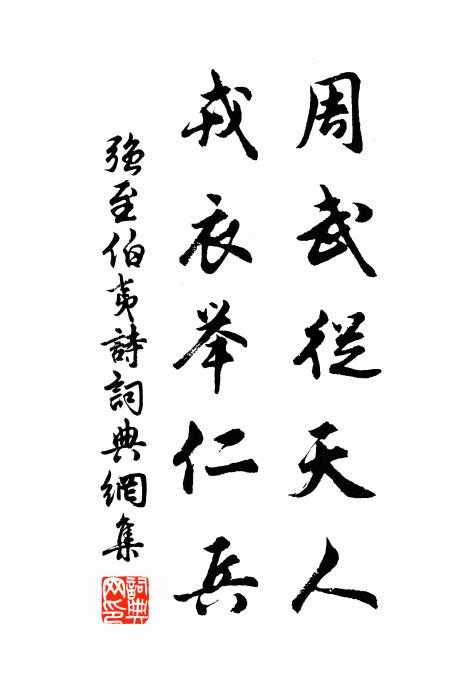 周武從天人
戎衣举仁兵
強至伯夷詩詞典網集
詞典網印